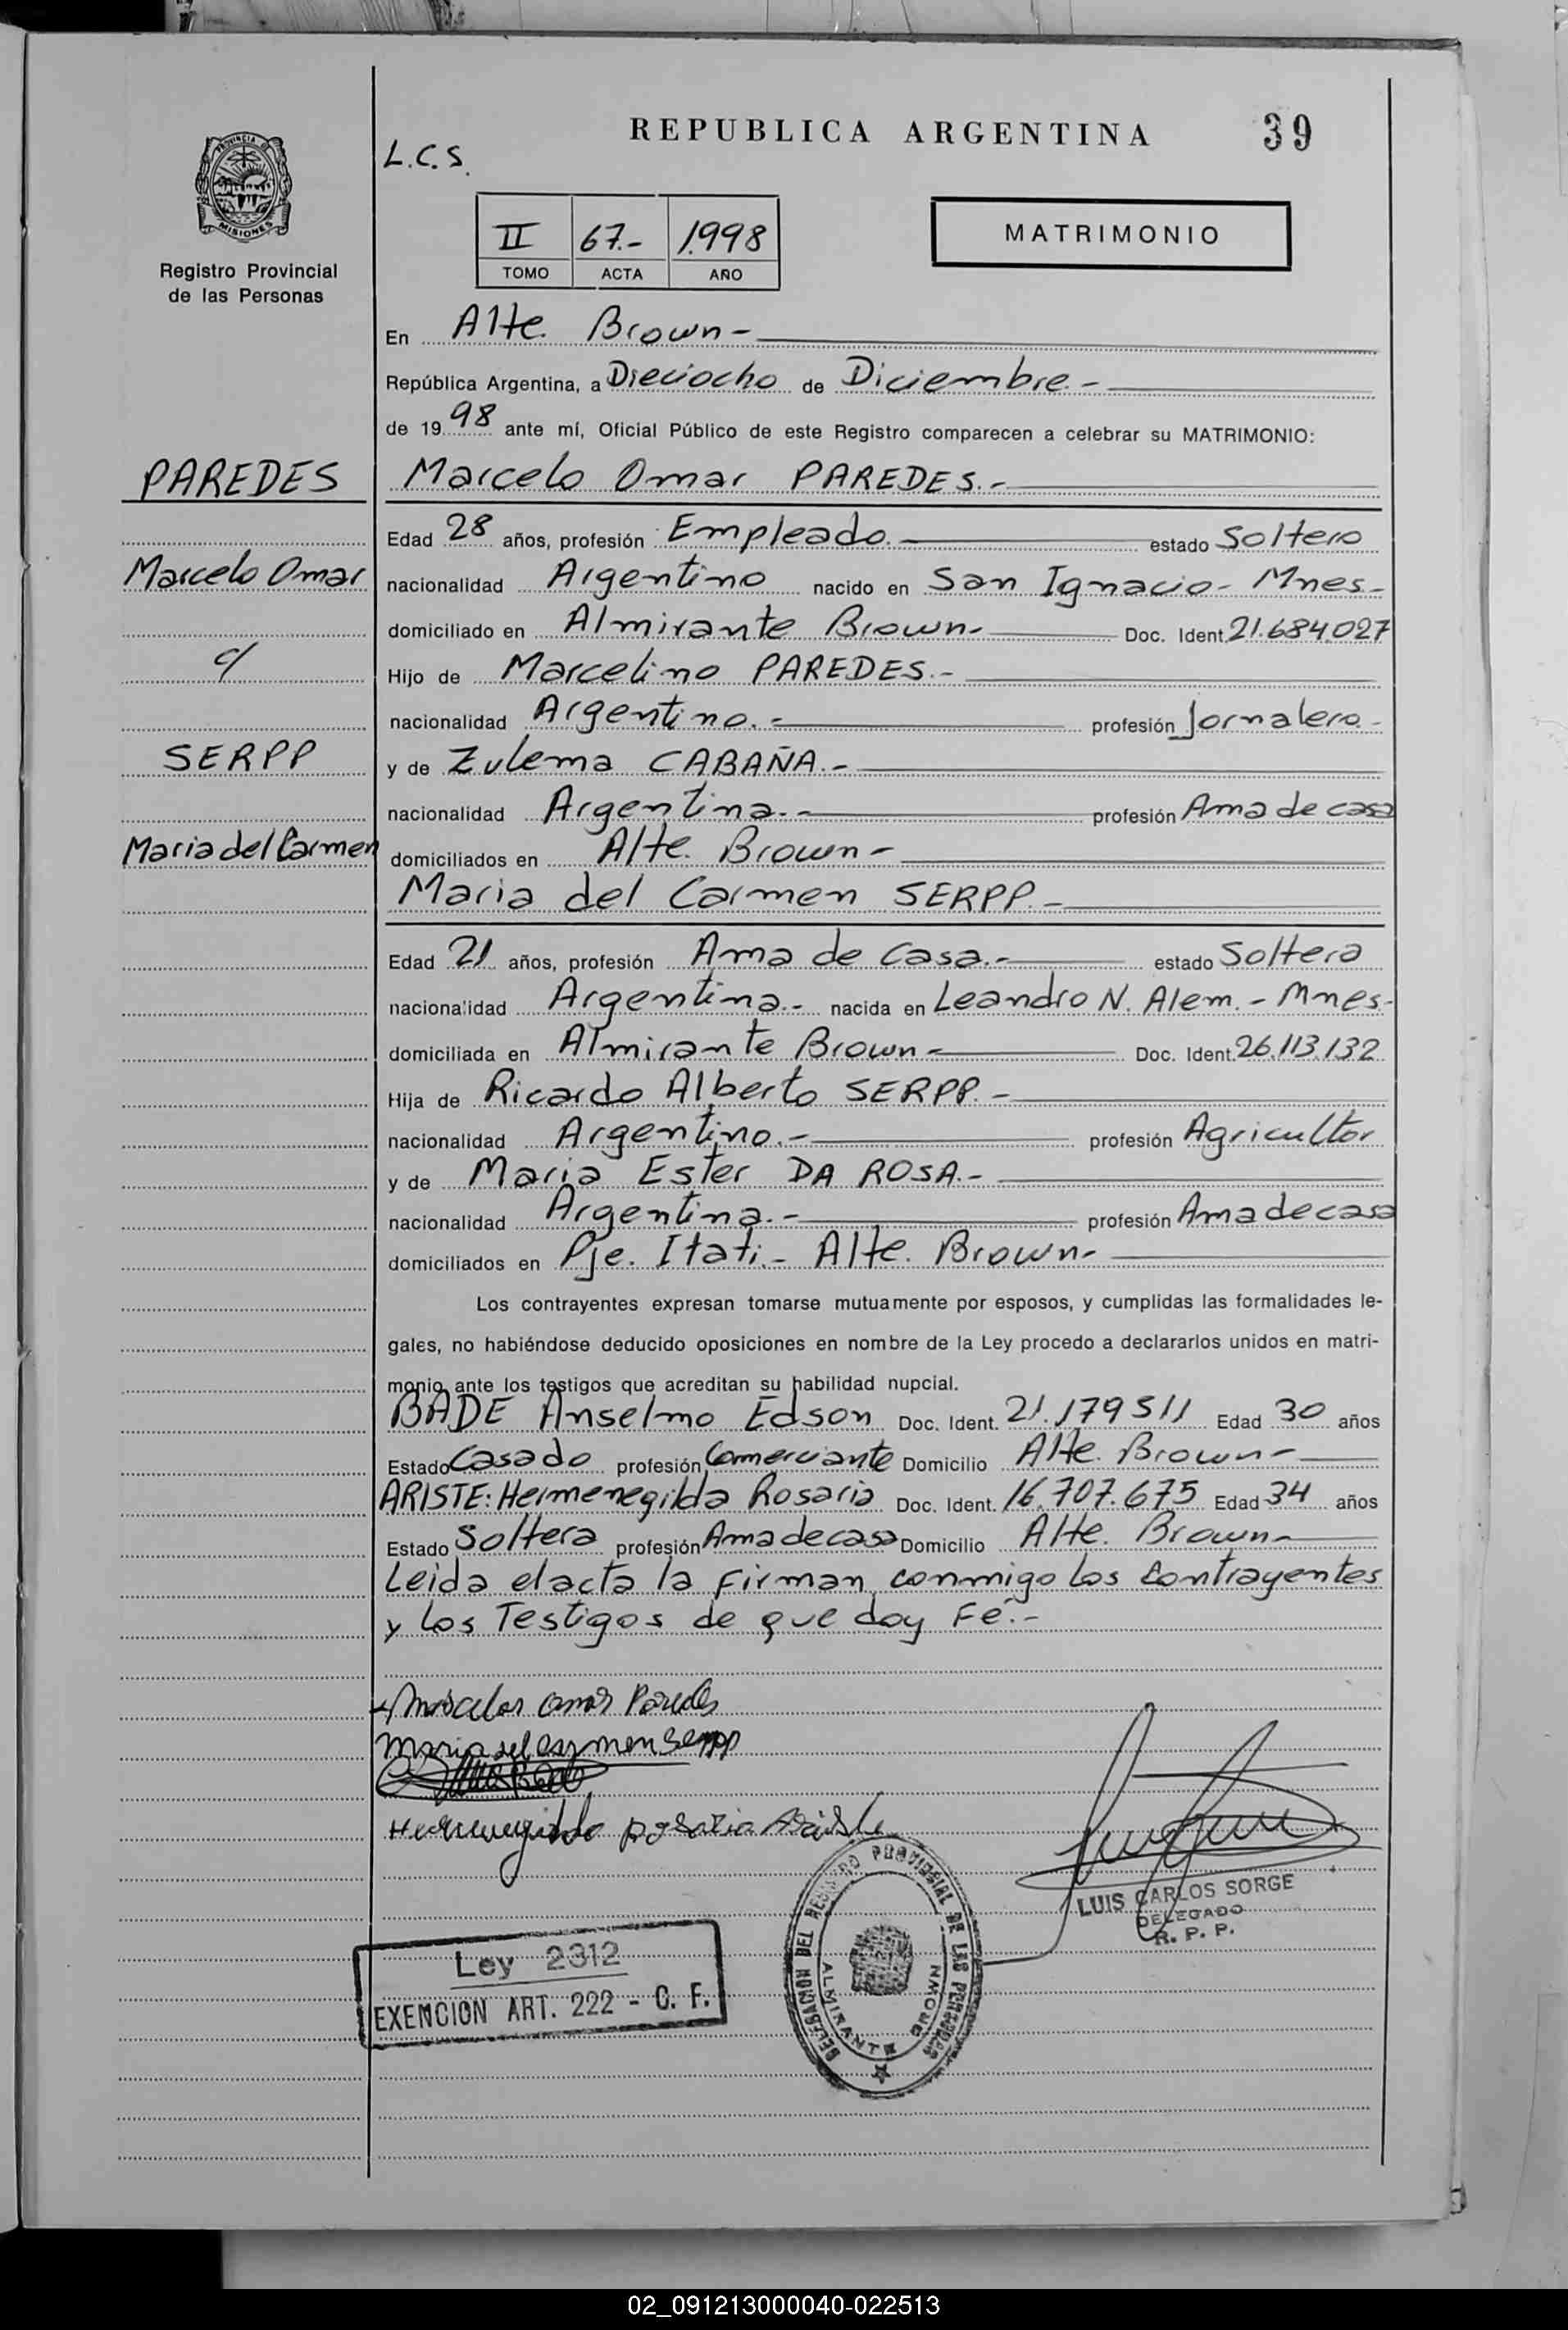 REPUBLICA ARGENTINA
39
L.C.S.
PROVINCIA DE
MISIONES
Registro Provincial
de las Personas
II 67.- 1.998
TOMO ACTA AÑO
MATRIMONIO
En Alte. Brown-
República Argentina, a Dieciocho de Diciembre.-
de 1998 ante mí, Oficial Público de este Registro comparecen a celebrar su MATRIMONIO:
PAREDES
Marcelo Omar PAREDES.-
Edad 28 años, profesión Empleado. estado Soltero
Marcelo Omar
nacionalidad Argentino nacido en San Ignacio- Mnes-
domiciliado en Almirante Brown- Doc. Ident. 21.684.027
c/
Hijo de Marcelino PAREDES.-
nacionalidad Argentino.- profesión Jornalero-
SERPP
y de Zulema CABAÑA.-
nacionalidad Argentina.- profesión Ama de casa
Maria del Carmen
domiciliados en Alte. Brown-
Maria del Carmen SERPP.-
Edad 21 años, profesión Ama de Casa.- estado Soltera
nacionalidad Argentina.- nacida en Leandro N. Alem.- Mnes-
domiciliada en Almirante Brown- Doc. Ident. 26.113.132
Hija de Ricardo Alberto SERPP.-
nacionalidad Argentino.- profesión Agricultor
y de Maria Ester DA ROSA.-
nacionalidad Argentina.- profesión Ama de casa
domiciliados en Pje. Itati.- Alte. Brown-
Los contrayentes expresan tomarse mutuamente por esposos, y cumplidas las formalidades le-
gales, no habiéndose deducido oposiciones en nombre de la Ley procedo a declararlos unidos en matri-
monio ante los testigos que acreditan su habilidad nupcial.
BADE Anselmo Edson Doc. Ident. 21.179511 Edad 30 años
Estado Casado profesión Comerciante Domicilio Alte. Brown-
ARISTE: Hermenegilda Rosaria Doc. Ident. 16.707.675 Edad 34 años
Estado Soltera profesión Ama de casa Domicilio Alte. Brown-
Leida el acta la firman conmigo los Contrayentes
y los Testigos de que doy Fé.-
Marcelo omar Paredes
Maria del carmen Serpp
Hermenegilda Rosaria Ariste
LUIS CARLOS SORGE
DELEGADO
R. P. P.
DELEGACION DEL REGISTRO PROVINCIAL DE LAS PERSONAS
ALMIRANTE BROWN
Ley 2312
EXENCION ART. 222 - C. F.
02_091213000040-022513